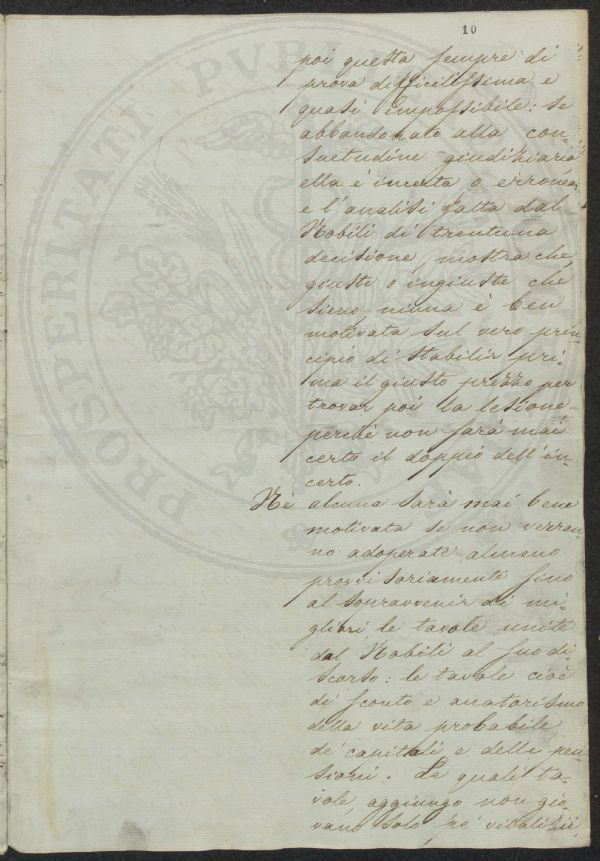 10
poi questa sempre di
prova difficilissima e
quasi impossibile: se
abbandonate alla con-
suetudine giudiziaria
ella è incerta o erronea
e l'analisi fatta dal
Nobili di trentuna
decisione, mostra che,
giuste o ingiuste che
sieno, niuna è ben
motivata sul vero prin-
cipio di stabilir pri-
ma il giusto prezzo per
trovar poi la lesione
perché non sarà mai
certo il doppio dell'in-
certo.
Nè alcuna sarà mai bene
motivata se non verran-
no adoperate almeno
provvisoriamente fino
al sopravvenir di mi-
gliori le tavole unite
dal Nobili al suo di-
scorso: le tavole cioè
di sconto e anatocismo
della vita probabile
de' capitali e delle pen-
sioni. Le quali ta-
vole, aggiungo non gio-
vano solo pe' vitalizii,
PROSPERITATI PVBLI